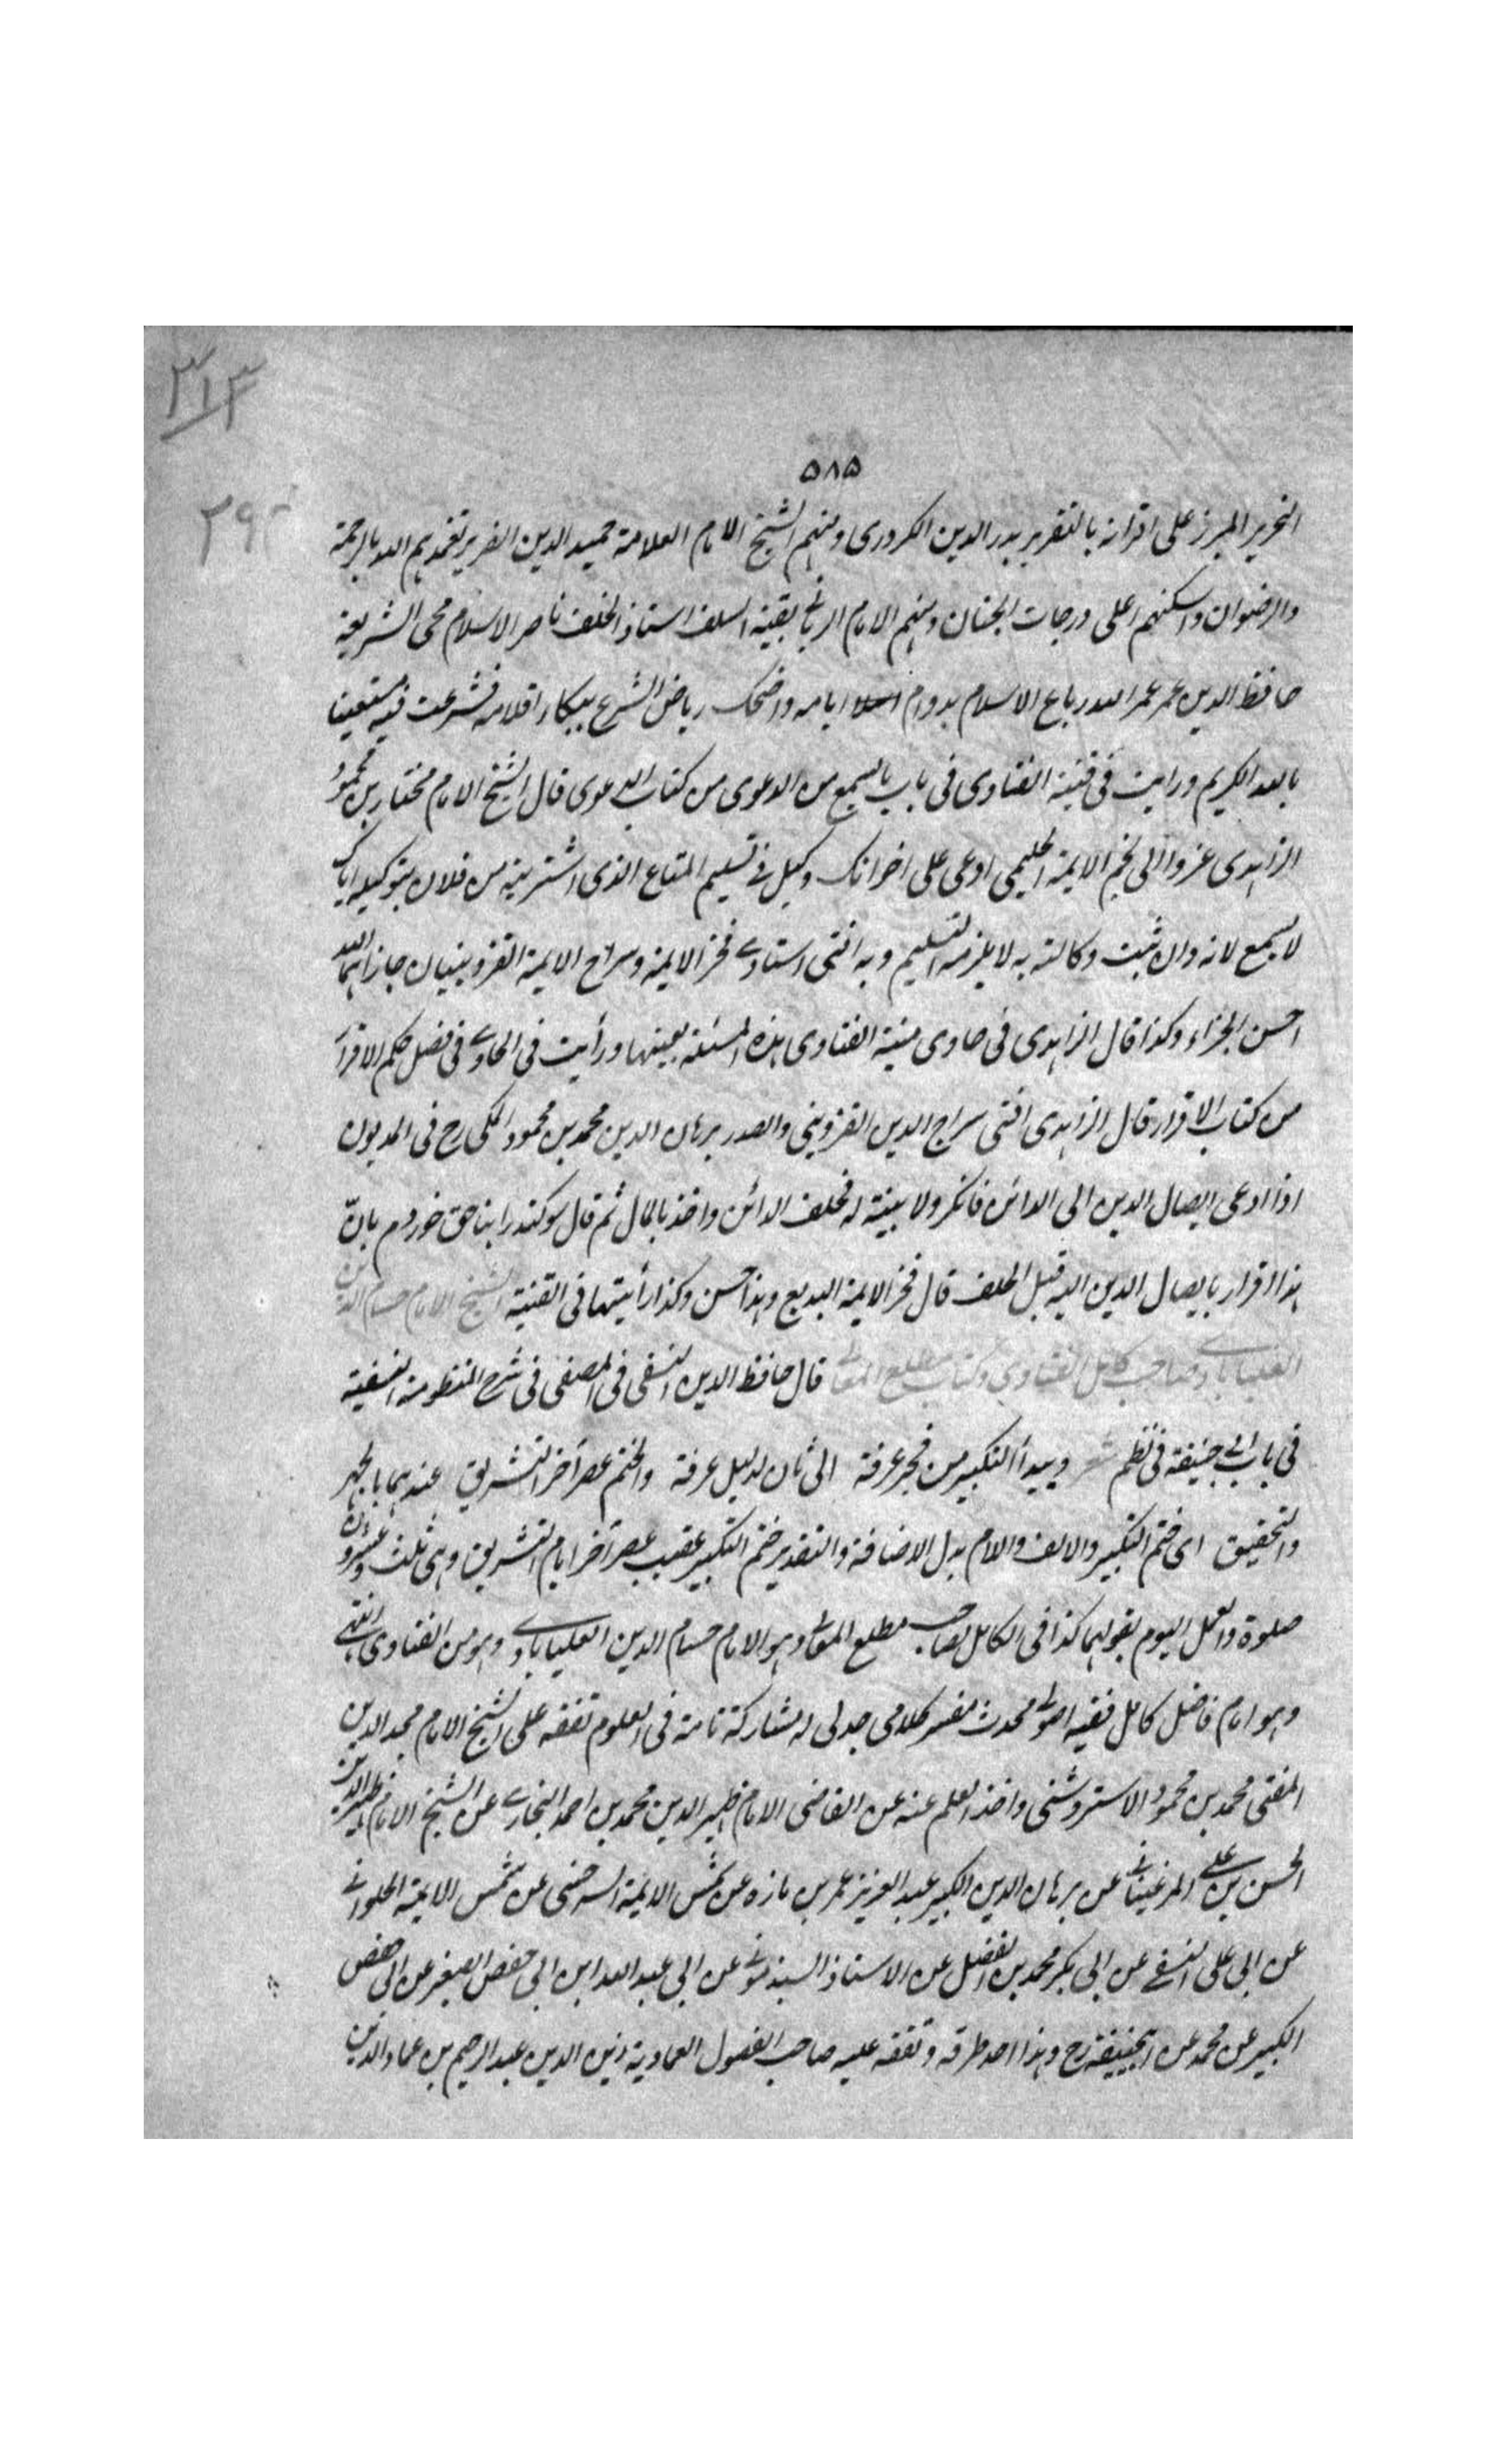 ٣١٣
٥٨٥
٢٩٣
النحرير المبرز على اقرانه بالتقرير بدر الدين الكردرى ومنهم الشيخ الامام العلامة حميد الدين الضرير تغمدهم الله بالرحمة
والرضوان واسكنهم اعلى درجات الجنان ومنهم الامام الربانى بقية السلف استاذ الخلف ناصر الاسلام محى الشريعة
حافظ الدين عمر عمر الله رباع الاسلام بدوام ايامه واضحك رياض الشرع ببكاء اقلامه فشرعت فيه مستعينا
بالله الكريم ورايت فى قنية الفتاوى فى باب ما يسمع من الدعوى من كتاب الدعوى قال الشيخ الامام مختار بن محمود
الزاهدى عزوا الى نجم الايمة الحليمى ادعى على اخر انك وكيل فى تسليم المتاع الذى اشتريته من فلان بتوكيله اياك
لا يسمع لانه وان ثبت وكالته به لا يلزمه التسليم وبه افتى استادى فخر الايمة وسراج الايمة القزوينيان جازاهما الله
احسن الجزاء وكذا قال الزاهدى فى حاوى منية الفتاوى هذه المسئلة بعينها ورأيت فى الحاوى فى فصل حكم الاقرار
من كتاب الاقرار قال الزاهدى افتى سراج الدين القزوينى والصدر برهان الدين محمد بن محمود المكى رح فى المديون
اذا ادعى ايصال الدين الى الدائن فانكر ولا بينة له فحلف الدائن واخذ بالمال ثم قال سوكند را بناحق خوردم بانّ
هذا اقرار بايصال الدين اليه قبل الحلف قال فخر الايمة البديع وهذا حسن وكذا رأيتها فى القنية الشيخ الامام حسام الدين
العليابادى صاحب كامل الفتاوى وكتاب مطلع المعانى قال حافظ الدين النسفى فى المصفى فى شرح المنظومة النسفية
فى باب ابى حنيفة فى نظم ويبدأ التكبير من فجر عرفة الى ثمان لدليل عرفة والختم عصر آخر التشريق عندهما بالجهر
والتحقيق اى ختم التكبير والالف واللام بدل الاضافة والتقدير ختم التكبير عقيب عصر آخر ايام التشريق وهى ثلث وعشرون
صلوة والعمل اليوم بقولهما كذا فى الكامل لصاحب مطلع المعانى وهو الامام حسام الدين العليابادى وهو من الفتاوى انتهى
وهو امام فاضل كامل فقيه اصولى محدث مفسر كلامى جدلى له مشاركة تامة فى العلوم تفقه على الشيخ الامام مجد الدين
المفتى محمد بن محمود الاستروشنى واخذ العلم عنه عن القاضى الامام ظهير الدين محمد بن احمد البخارى عن الشيخ الامام ظهير الدين
الحسن بن على المرغينانى عن برهان الدين الكبير عبد العزيز عمر بن مازه عن شمس الايمة السرخسى عن شمس الايمة الحلوانى
عن ابى على النسفى عن ابى بكر محمد بن الفضل عن الاستاذ السبذمونى عن ابى عبد الله ابن ابى حفص الصغير عن ابى حفص
الكبير عن محمد عن ابيحنيفة رح وهذا احد طرقه وتفقه عليه صاحب الفصول العمادية زين الدين عبد الرحيم بن عماد الدين